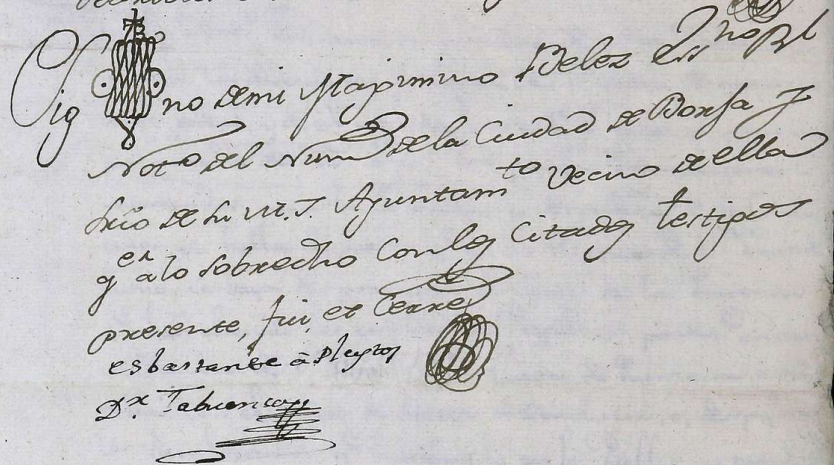 Sig no de mi Maximino Belez Ess.no Rl
Not.o del Num.o de la Ciudad de Borja y
Srio de su M. I. Ayuntam.to vecino de ella
q.e a lo sobredho con los Citados testigos
presente, fui, et Cerre
es bastante à Pleytos
D.r Tabuenca